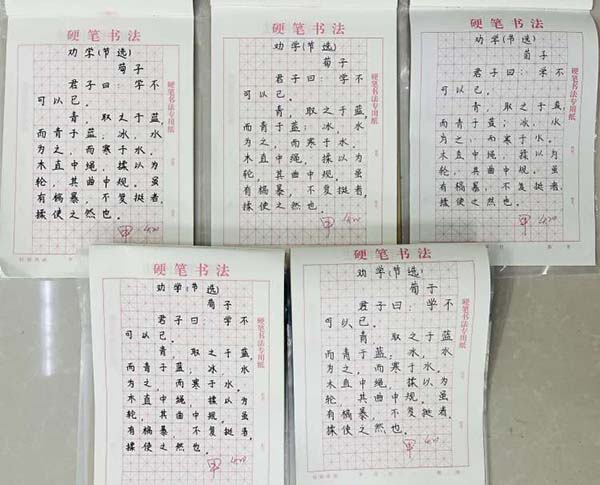 硬笔书法
劝学(节选)
荀子
君子曰：学不
可以已。
青，取之于蓝，
而青于蓝；冰，水
为之，而寒于水。
木直中绳，揉以为
轮，其曲中规。虽
有槁暴，不复挺者，
揉使之然也。
甲 4.20
硬笔书法专用纸
硬笔书法
劝学(节选)
荀子
君子曰：学不
可以已。
青，取之于
而青于蓝；冰，水
为之，而寒于水。
木直中绳，揉以为
轮，其曲中规。虽
有槁暴，不复挺者，
揉使之然也。
甲 4.20
硬笔书法专用纸
硬笔书法
劝学(节选)
荀子
君子曰：学不
可以已。
青，取之于蓝，
而青于蓝；冰，水
为之，而寒于水。
木直中绳，揉以为
轮，其曲中规。虽
有槁暴，不复挺者，
揉使之然也。
甲 4.20
硬笔书法专用纸
硬笔书法
劝学(节选)
荀子
君子曰：学不
可以已。
青，取之于蓝，
而青于蓝；冰，水
为之，而寒于水。
木直中绳，揉以为
轮，其曲中规。虽
有槁暴，不复挺者，
揉使之然也。
甲 4.20
硬笔书法专用纸
硬笔书法
劝学(节选)
荀子
君子曰：学不
可以已。
青，取之于蓝，
而青于蓝；冰，水
为之，而寒于水。
木直中绳，揉以为
轮，其曲中规。虽
有槁暴，不复挺者，
揉使之然也。
甲 4.20
硬笔书法专用纸